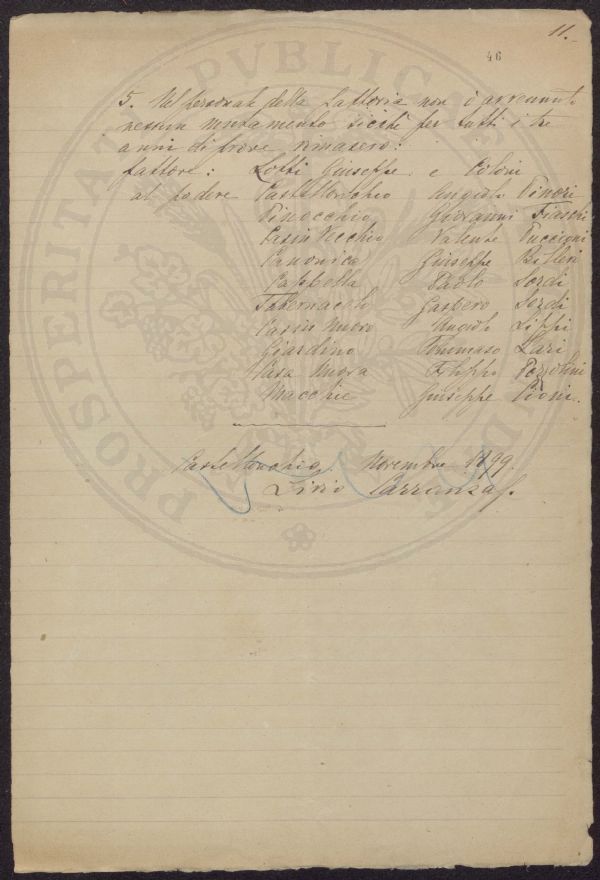 11.
46
5. Nel personale della fattoria non è avvenuto
nessun mutamento sicchè per tutti i tre
anni di prove rimasero:
fattore: Lotti Giuseppe e Coloni
al podere Castellonchio Angiolo Pinori
Pinocchio Giovanni Fiaschi
Casin Vecchio Valente Puccioni
Canonica Giuseppe
Cappella Paolo Sordi
Tabernacolo Gaspero Sordi
Casin Nuovo Angiolo Lippi
Giardino Tommaso Lari
Casa Nuova Filippo Pozzolini
Macchie Giuseppe Pioni.
Castellonchio Novembre 1899.
Livio Carranza f.
PROSPERITATI PVBLICAE